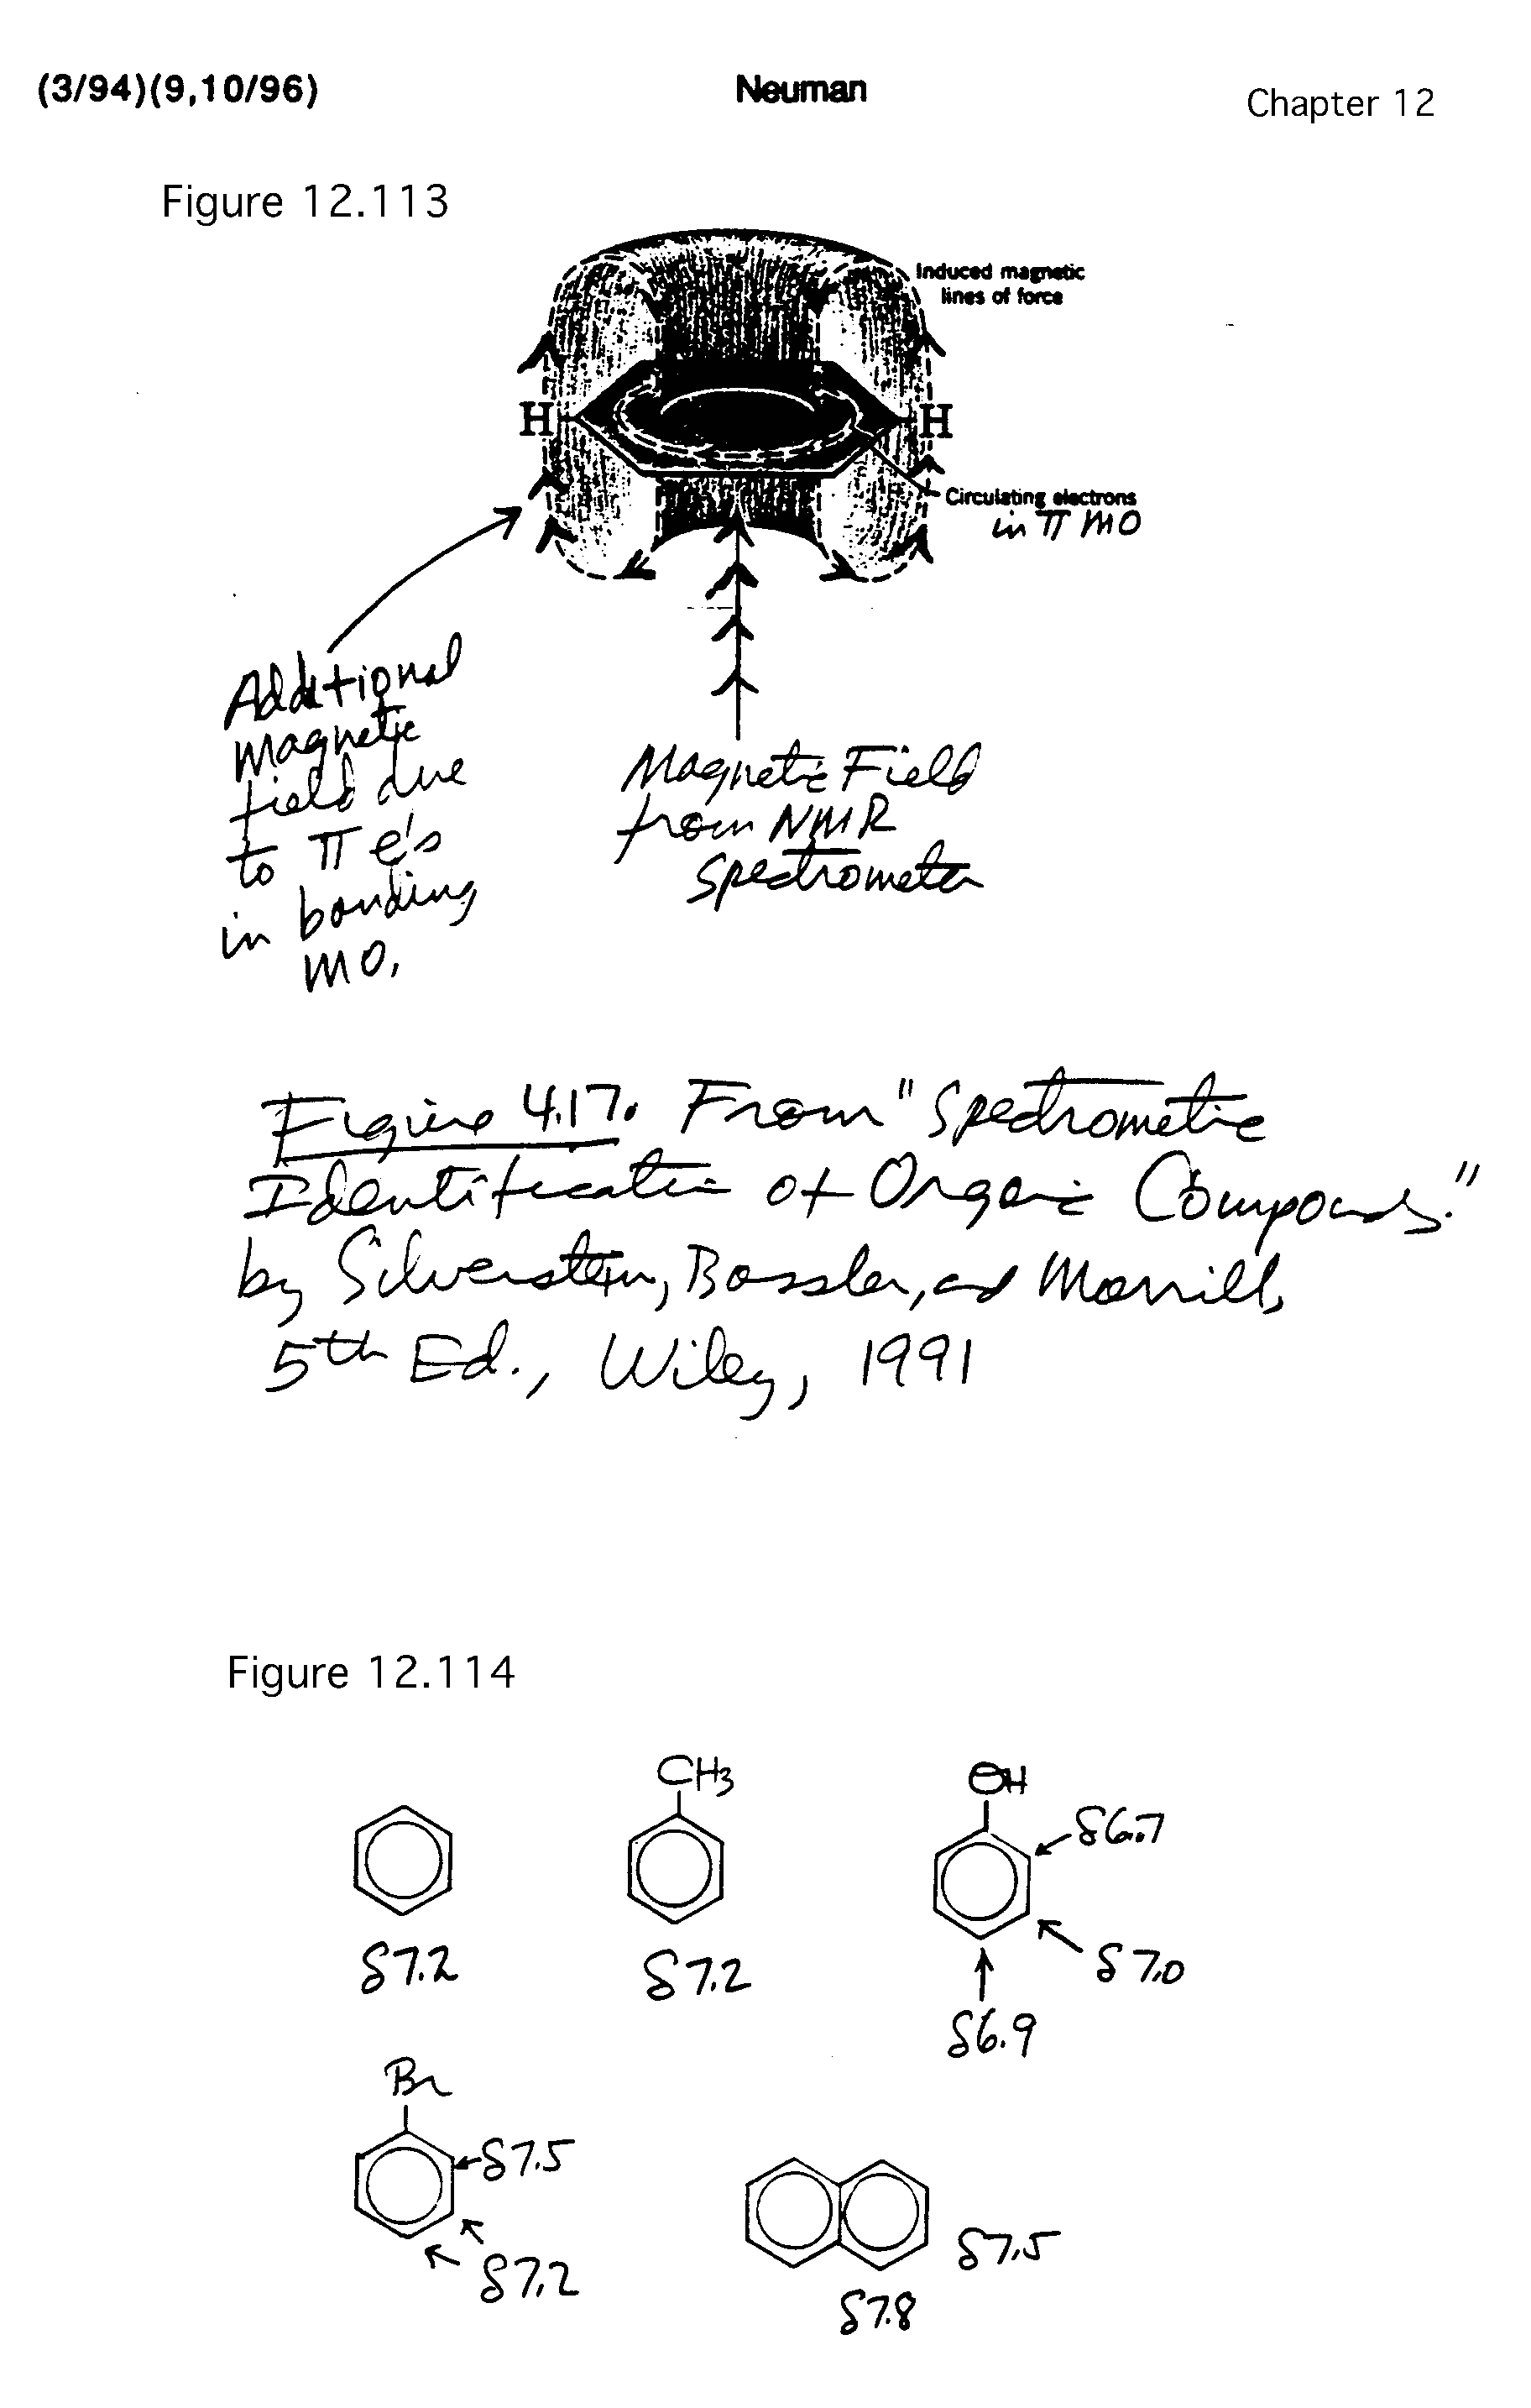 (3/94)(9,10/96) Neuman Chapter 12
Figure 12.113
Induced magnetic
lines of force
H H
Circulating electrons
in π MO
Additional
Magnetic
field due
to π e's
in bonding
MO.
Magnetic Field
from NMR
Spectrometer
Figure 4.17. From "Spectrometric
Identification of Organic Compounds."
by Silverstein, Bassler, and Morrill,
5th Ed., Wiley, 1991
Figure 12.114
CH3
OH
δ6.7
δ7.2
δ7.2
δ7.0
δ6.9
Br
δ7.5
δ7.2
δ7.5
δ7.8